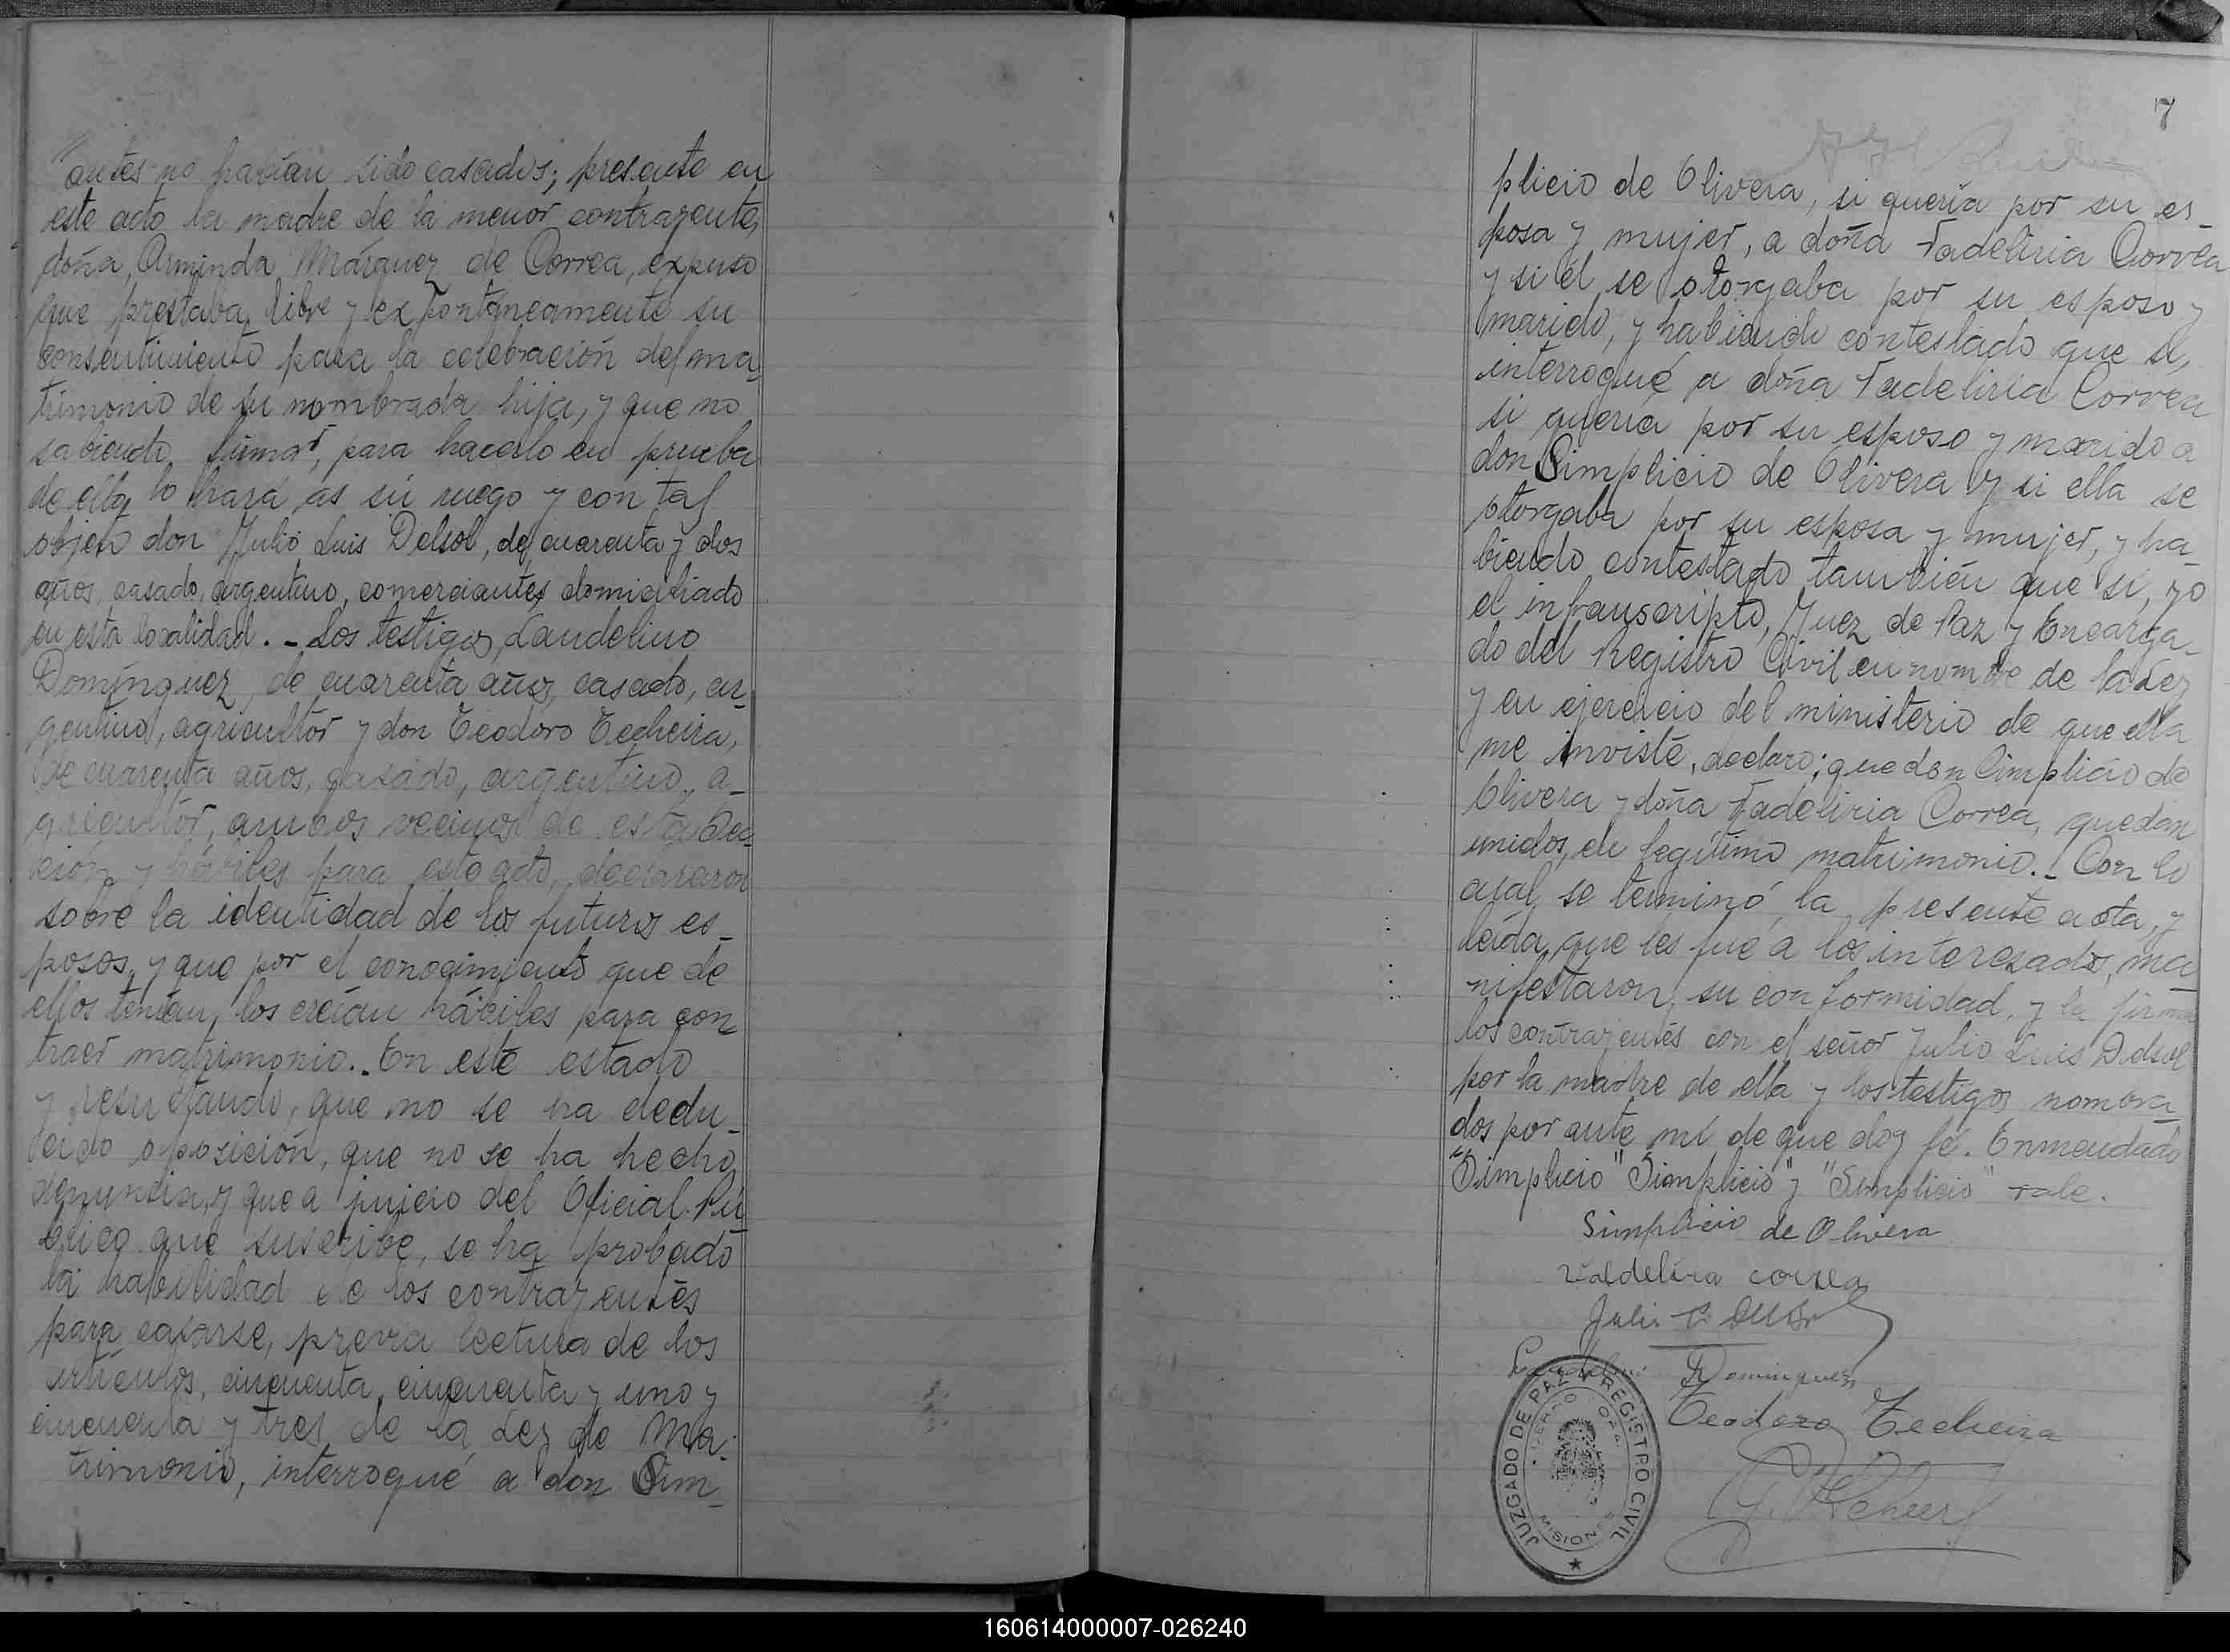 antes no habían sido casados; presente en
este acto la madre de la menor contrayente,
doña, Arminda Márquez de Correa, expuso
que prestaba libre y expontaneamente su
consentimiento para la celebración del ma_
trimonio de su nombrada hija, y que no
sabiendo firmar, para hacerlo en prueba
de ella lo hará as su ruego y con tal
objeto don Julio Luis Delsol, de cuarenta y dos
años, casado, argentino, comerciante, domiciliado
en esta localidad. _ Los testigos, Landelino
Domínguez, de cuarenta años, casado, ar_
gentino, agricultor y don Teodoro Techeira,
de cuarenta años, casado, argentino, a_
gricultor, ambos vecinos de esta Sec
ción y hábiles para este acto, declararon
sobre la identidad de los futuros es_
posos, y que por el conocimiento que de
ellos tenían, los creían hábiles para con_
traer matrimonio._ En este estado
y resultando, que no se ha dedu_
cido oposición, que no se ha hecho
denuncia, y que a juicio del Oficial Pú_
blico que suscribe, se ha probado
la habilidad de los contrayentes
para casarse, previa lectura de los
artículos, cincuenta, cincuenta y uno y
cincuenta y tres de la Ley de Ma_
trimonio, interrogué a don Sim_
7
plicio de Olivera, si quería por su es_
posa y mujer, a doña Fadeliria Correa
y si él se otorgaba por su esposo y
marido, y habiendo contestado que si,
interrogué a doña Fadeliria Correa
si quería por su esposo y marido a
don Simplicio de Olivera y si ella se
otorgaba por su esposa y mujer, y ha_
biendo contestado también que si, yo
el infranscripto, Juez de Paz y Encarga_
do del Registro Civil en nombre de la Ley
y en ejercicio del ministerio de que ella
me inviste, declaro; que don Simplicio de
Olivera y doña Fadeliria Correa, quedan
unidos en legítimo matrimonio._ Con lo
cual se terminó la presente acta, y
leída que les fué a los interesados, ma_
nifestaron su conformidad, y la firman
los contrayentes con el señor Julio Luis Delsol
por la madre de ella y los testigos nombra_
dos por ante mí de que doy fé. Enmendado
"Simplicio" Simplicio" y "Simplicio" vale.
Simplicio de Olivera
Valdelira correa
Julio L. Delsol
Landelino Dominguez
Teodoro Techeira
JUZGADO DE PAZ Y REGISTRO CIVIL
MISIONES
160614000007-026240